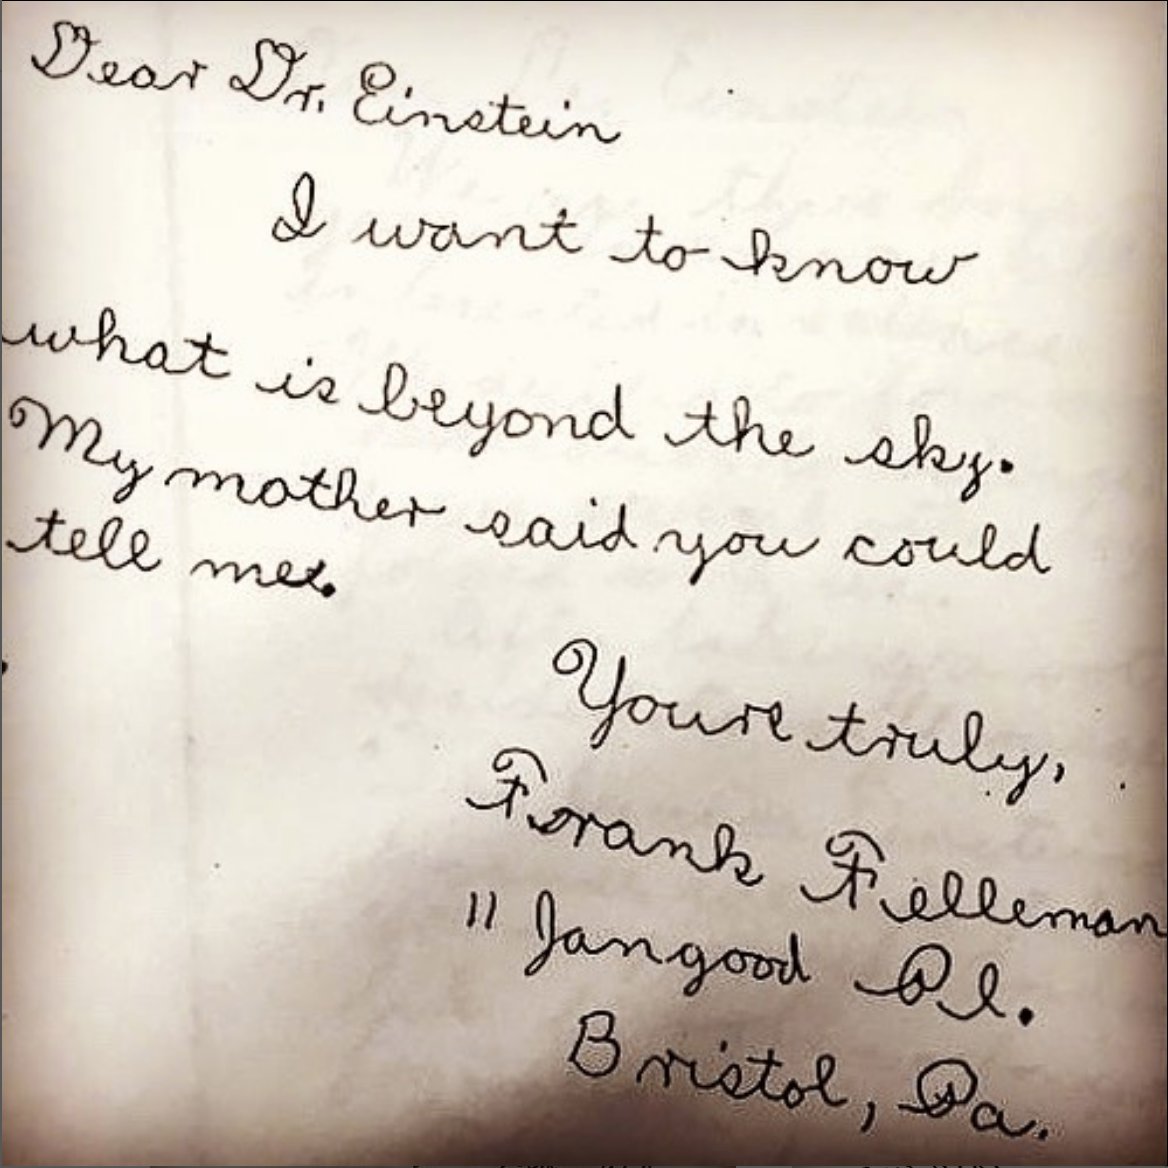 Dear Dr. Einstein
I want to know
what is beyond the sky.
My mother said you could
tell me.
Yours truly,
Frank Felleman
11 Jangood Pl.
Bristol, Pa.